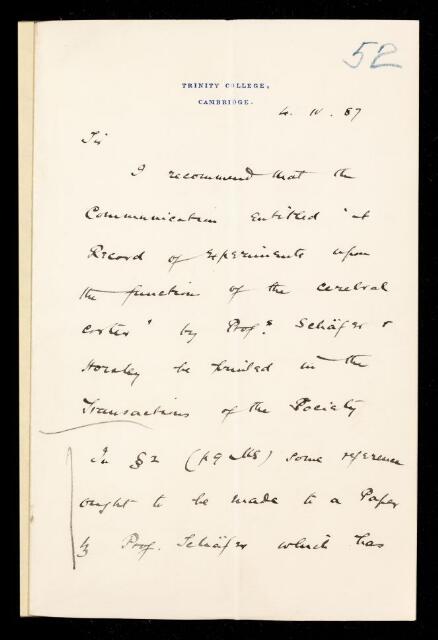 52
TRINITY COLLEGE,
CAMBRIDGE.
4. IV. 87
Sir
I recommend that the
Communication entitled "A
Record of experiments upon
the function of the cerebral
cortex" by Profs. Schäfer &
Horsley be printed in the
Transactions of the Society
In § 2 (p 9 MS) some reference
ought to be made to a Paper
by Prof. Schäfer which has